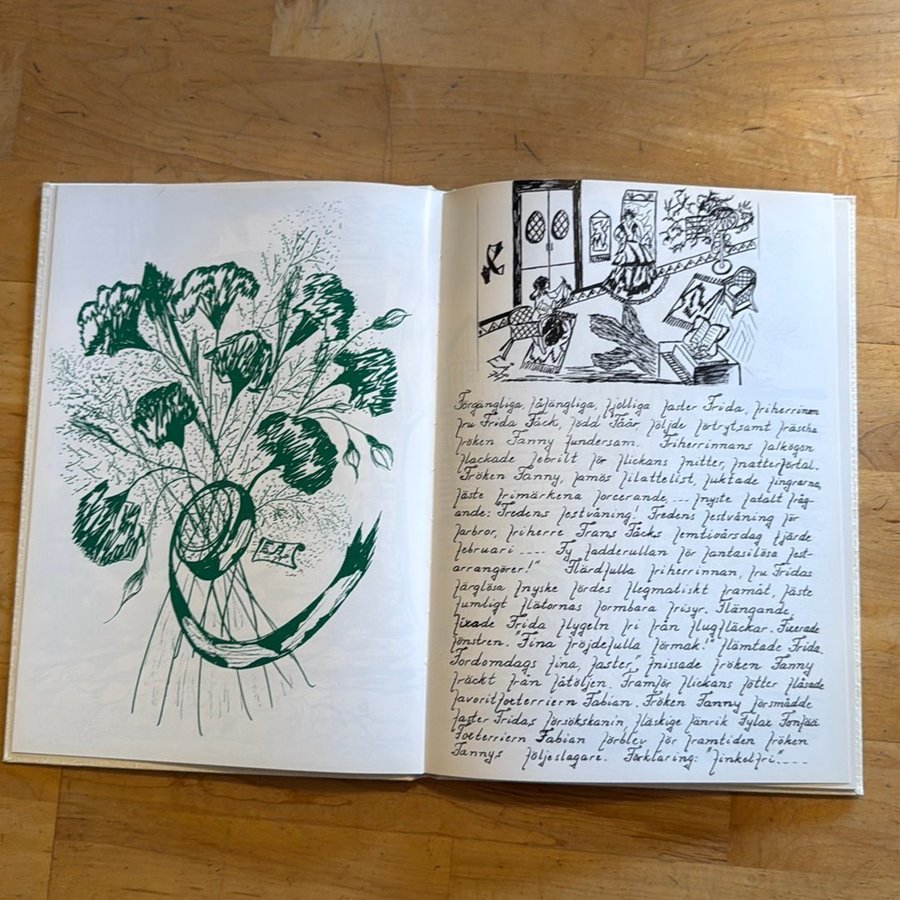 E.A.
Förgängliga, fåfängliga, fjolliga faster Frida, friherrinnan
fru Frida Fäck, född Fåår följde förtrytsamt fräscha
fröken Fanny fundersam. Friherrinnans falkögon
flackade febrilt för flickans fnitter, fnatterförtal.
Fröken Fanny, famös filattelist, fuktade fingrarna,
fäste frimärkena forcerande,--- fnyste fatalt fråg-
ande: "Fredens festvåning! Fredens festvåning för
farbror, friherre Frans Fäcks femtioårsdag fjärde
februari ---- Fy fadderullan för fantasilösa fest-
arrangörer!" Flärdfulla friherrinnan, fru Fridas
färglösa fnyske fördes flegmatiskt framåt, fäste
fumligt flätornas formbara frisyr. Flängande,
fixade Frida flygeln fri från flugfläckar. Fixerade
fönstren. "Fina fröjdefulla förmak!" flämtade Frida.
"Fordomdags fina, faster," fnissade fröken Fanny
fräckt från fåtöljen. Framför flickans fötter flåsade
favoritfoxterriern Fabian. Fröken Fanny försmådde
faster Fridas försökskanin, fläskige Fänrik Fylax
Foxterriern Fabian förblev för framtiden fröken
Fannys följeslagare. Förklaring: "finkelfri".----